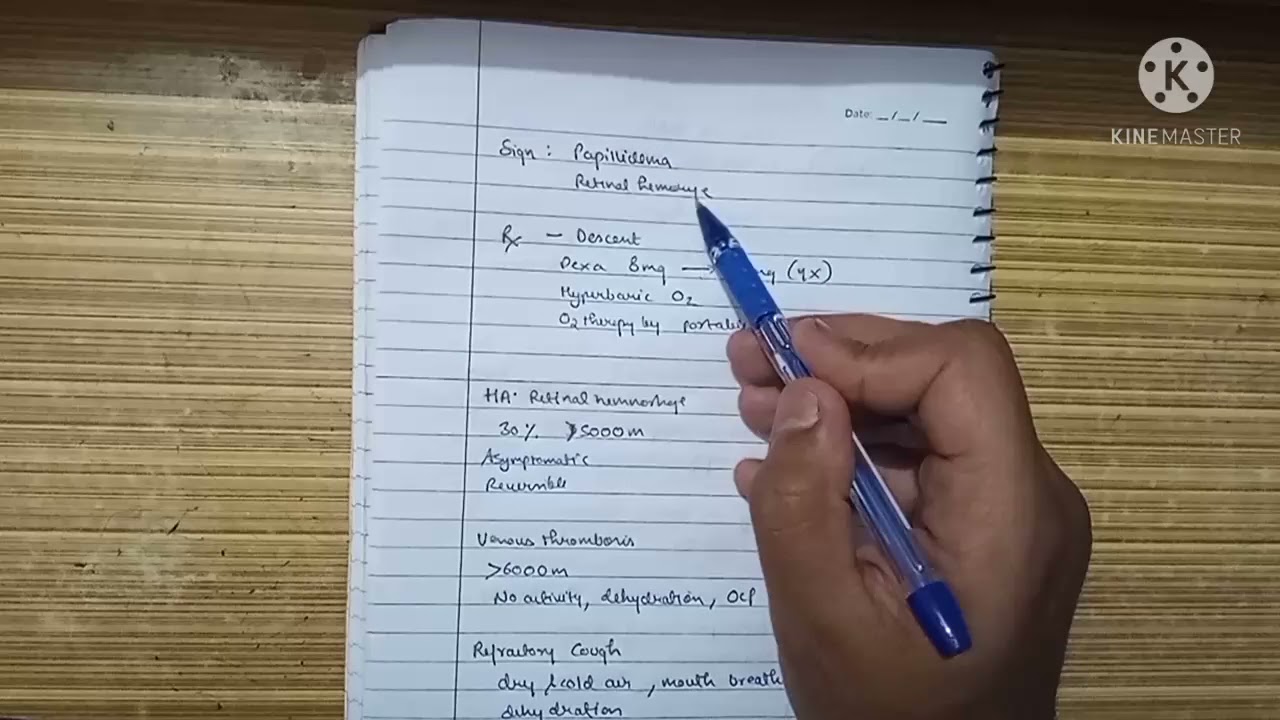 K
KINEMASTER
Date: _/_/__
Sign : Papillidema
Retinal hemorrge
Rx - Descent
Dexa 8mg → mg (4x)
Hyperbaric O2
O2 therapy by
HA. Retinal hemorrhge
30% >5000m
Asymptomatic
Reversible
Venous thrombosis
>6000m
No activity, dehydration, OCP
Refractory Cough
dry & cold air , mouth breath
dehydration